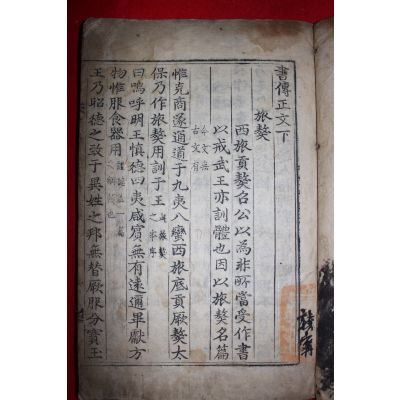 書傳正文下
旅獒
西旅貢獒召公以為非所當受作書
以戒武王亦訓體也因以旅獒名篇
今文無
古文有
惟克商遂通道于九夷八蠻西旅底貢厥獒太
保乃作旅獒用訓于王此旅獒之本序
曰嗚呼明王慎德四夷咸賓無有遠邇畢獻方
物惟服食器用謹德蓋一篇之綱領也
王乃昭德之致于異姓之邦無替厥服分寶玉